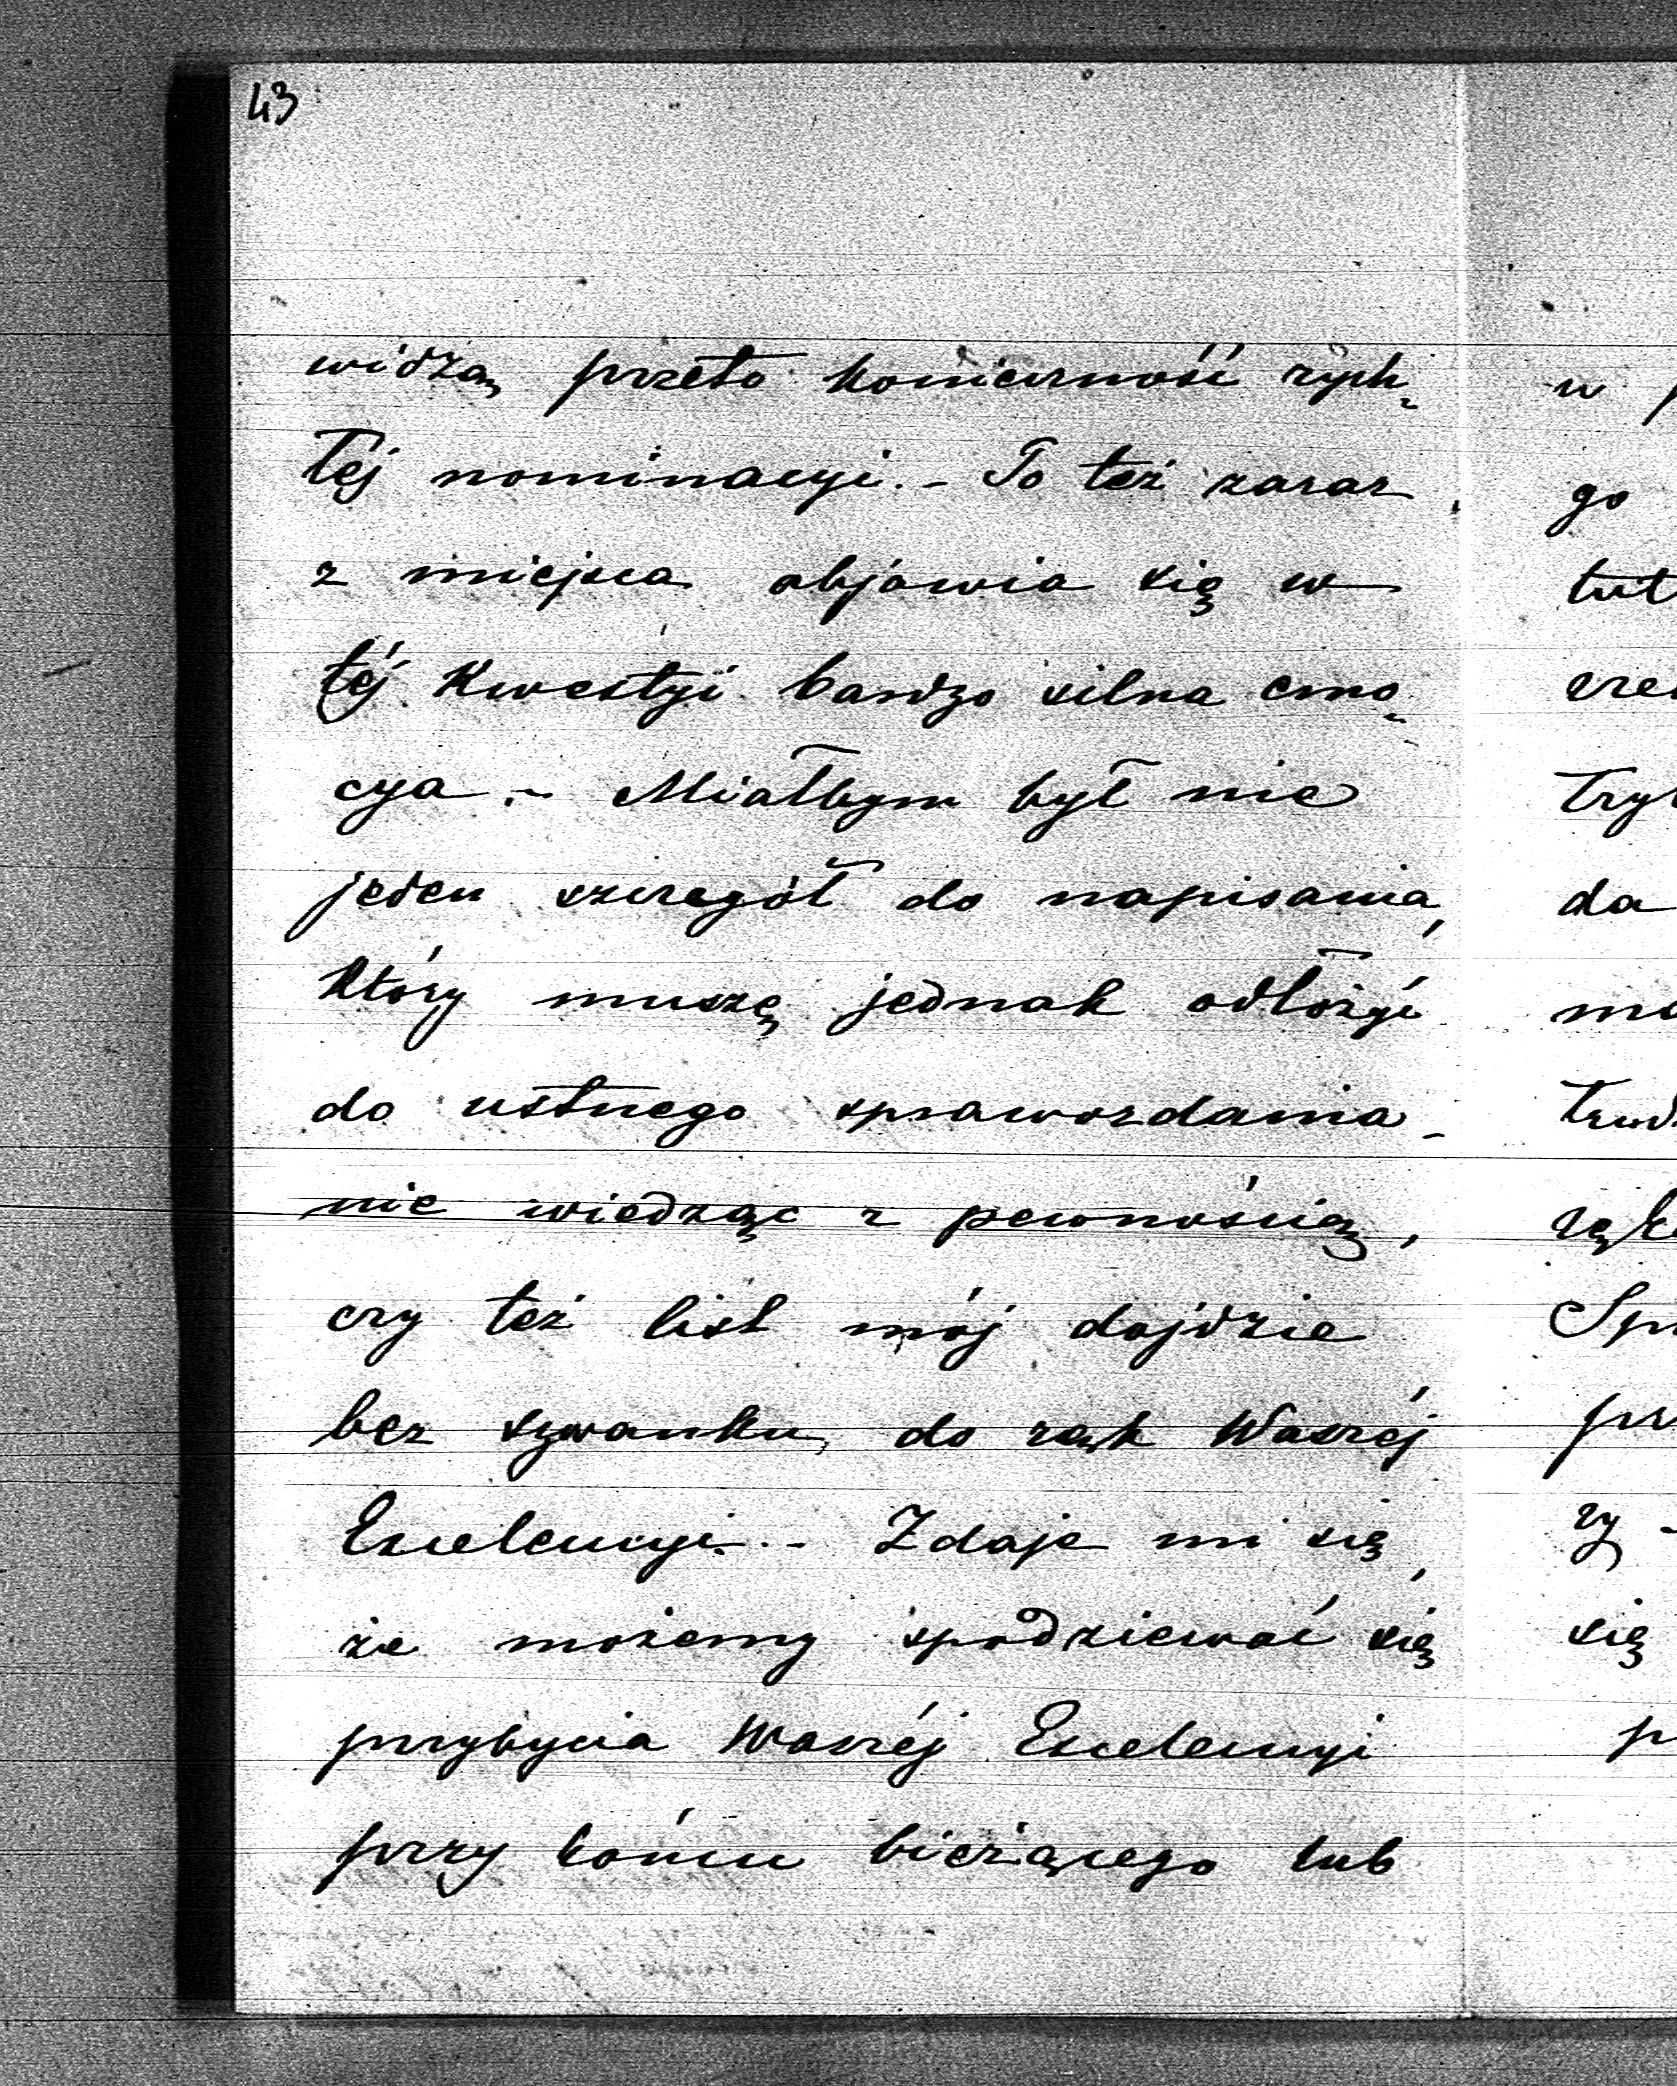 43
widzą przeto konieczność rych-
łej nominacyi. - To też zaraz
z miejsca objawia się w
téj kwestyi bardzo silna emo-
cya. - Miałbym był nie
jeden szczegół do napisania,
który muszę jednak odłożyć
do ustnego sprawozdania -
nie wiedząc z pewnością,
czy też list mój dojdzie
bez szwanku do rąk Waszéj
Excelencyi. - Zdaje mi się,
że możemy spodziewać się
przybycia Waszéj Excelencyi
przy końcu bieżącego lub
w
go
tut
da
się